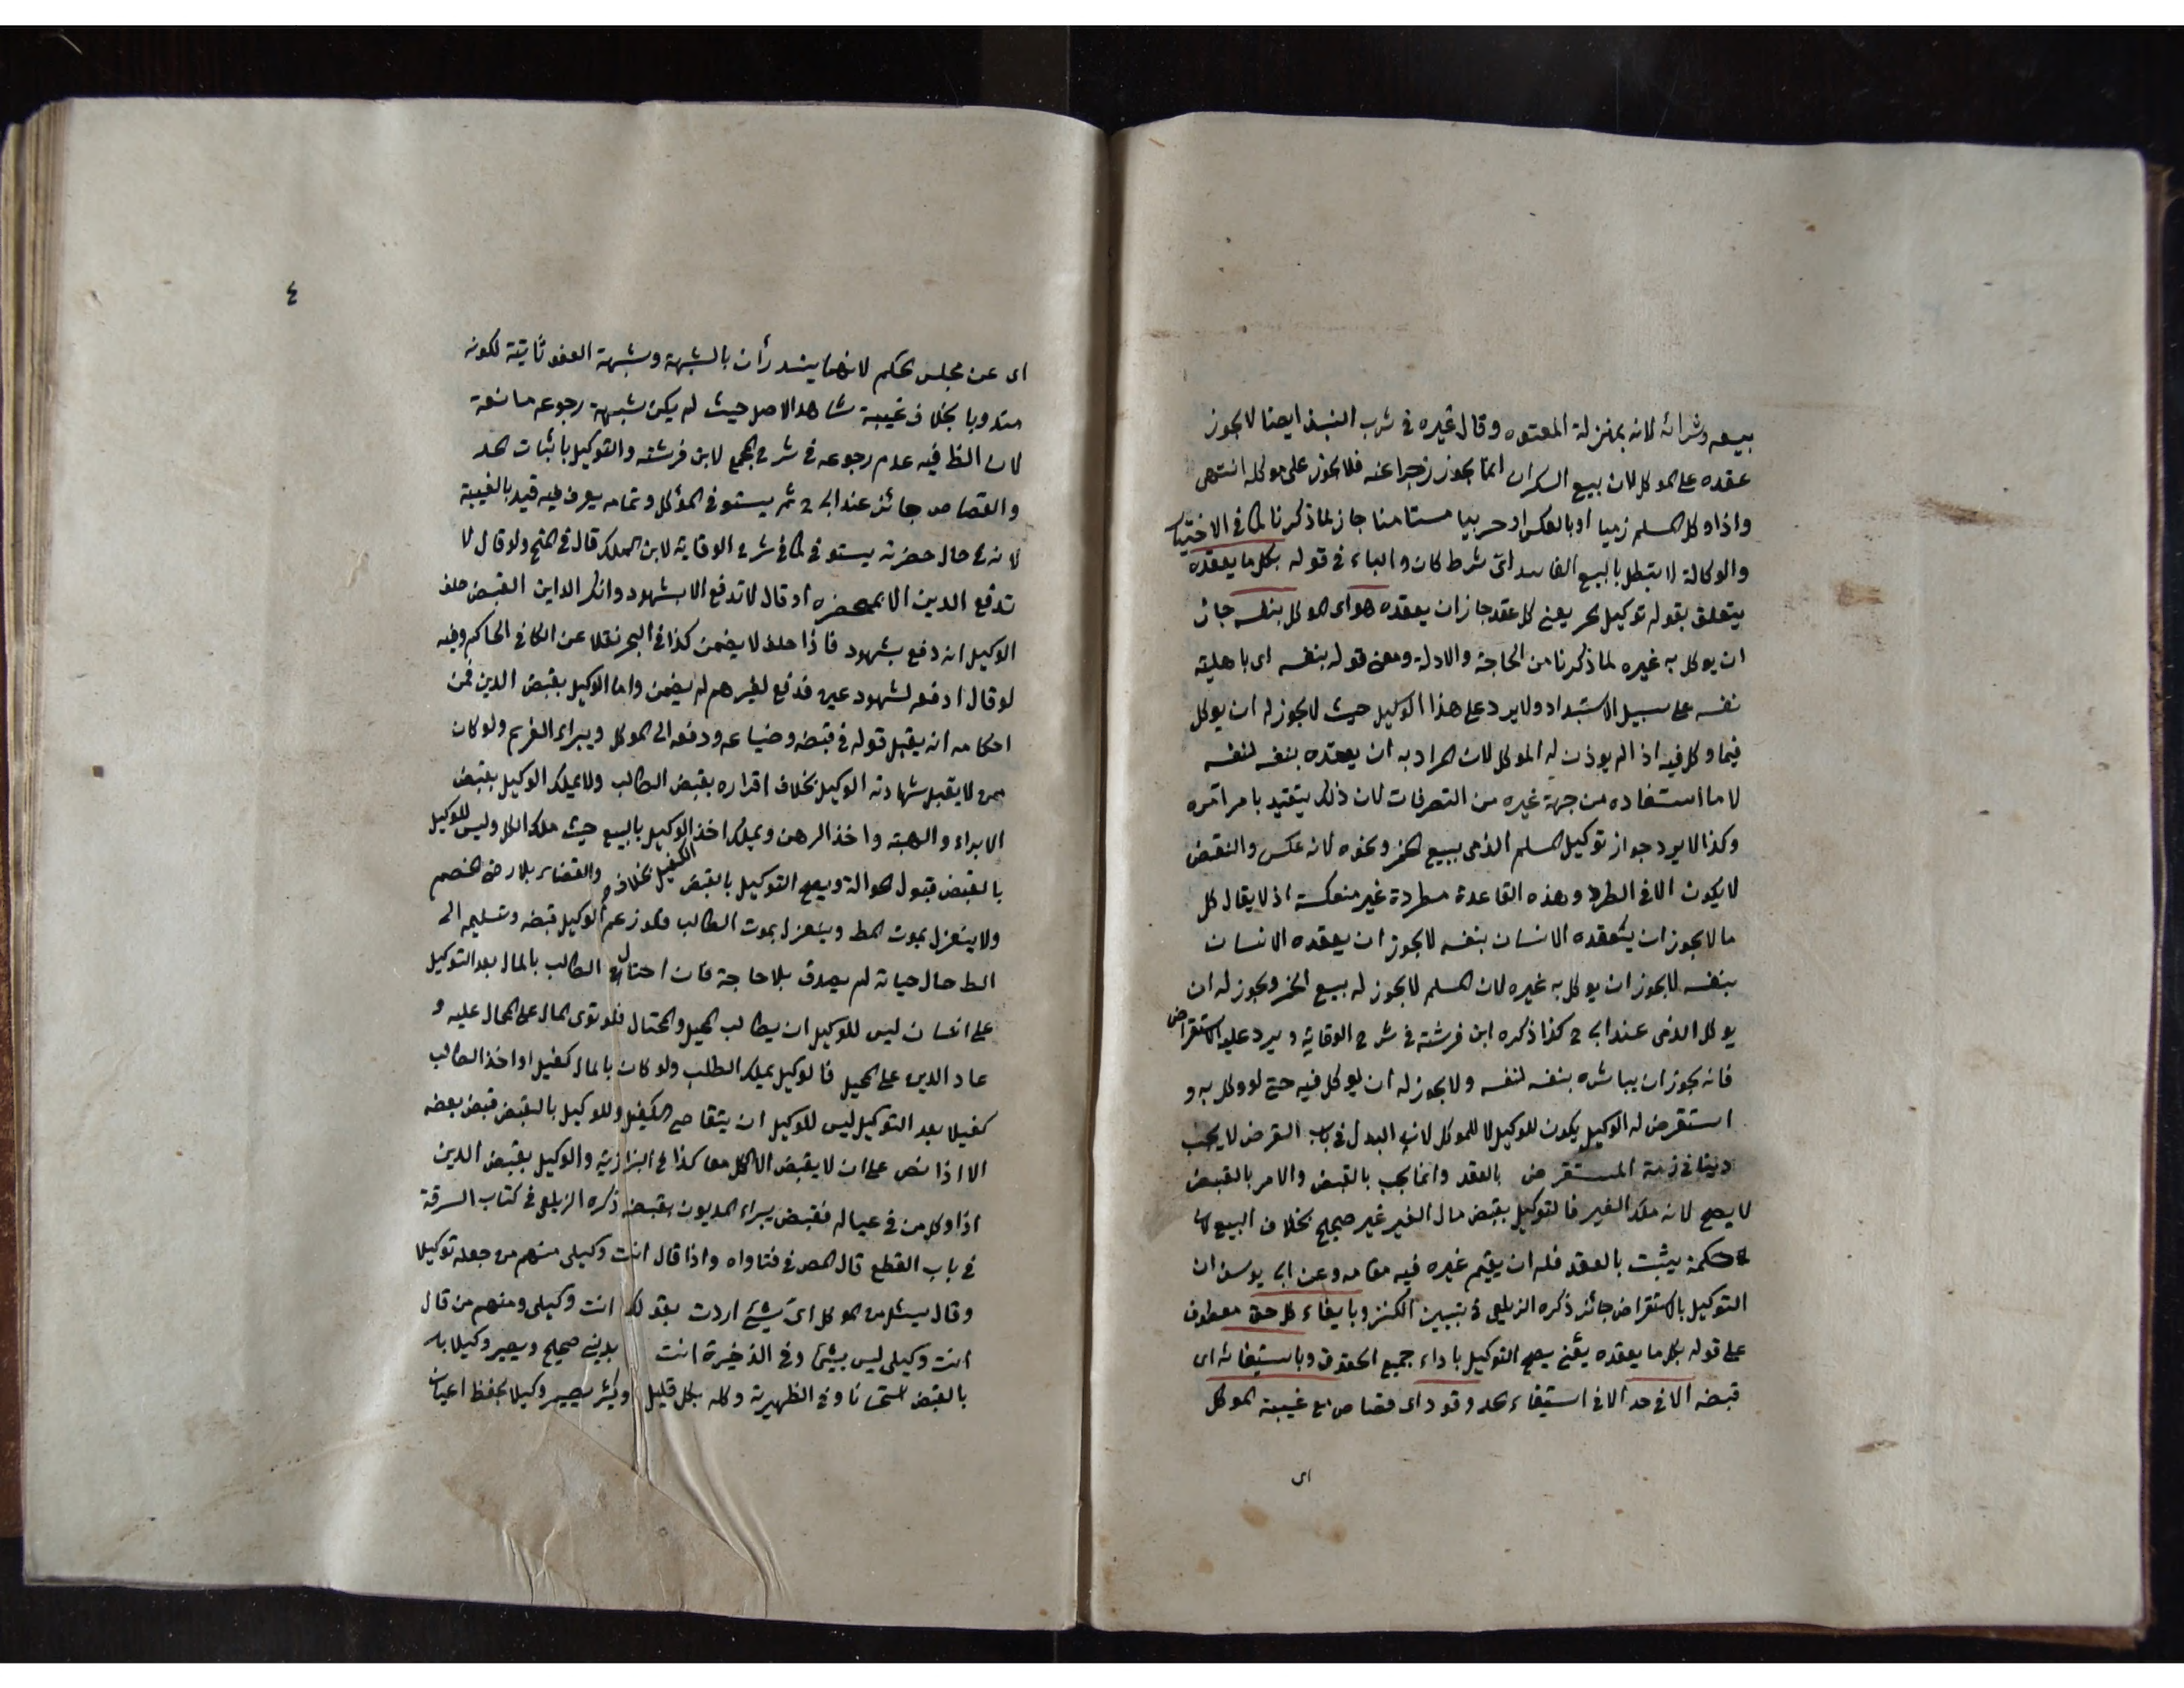 بيعه وشرائه لانه بمنزلة المعتوه وقال غيره في شرب النبيذ ايضا لا يجوز
عقده على الموكل لان بيع السكران انما يجوز زجرا عنه فلا يجوز على موكله انتهى
واذا وكل المسلم ذميا او بالعكس او حربيا مستامنا جاز لما ذكرنا كما في الاختيار
والوكالة لا تبطل بالبيع الفاسد اى شرط كان والباء في قوله بكل ما يعقده
يتعلق بقوله توكيل حر يعني كل عقد جاز ان يعقده هو اى الموكل بنفسه جاز
ان يوكل به غيره لما ذكرنا من الحاجة والادلة ومعنى قوله بنفسه اى باهلية
نفسه على سبيل الاستبداد ولا يرد على هذا الوكيل حيث لا يجوز له ان يوكل
فيما وكل فيه اذا لم يوذن له الموكل لان المراد به ان يعقده بنفسه لنفسه
لا ما استفاده من جهة غيره من التصرفات لان ذلك يتقيد بامر آمره
وكذا لا يرد جواز توكيل المسلم الذمى ببيع الخمر ونحوه لانه عكس والنقض
لا يكون الا في الطرد وهذه القاعدة مطردة غير منعكسة اذ لا يقال كل
ما لا يجوز ان يعقده الانسان بنفسه لا يجوز ان يعقده الانسان
بنفسه لا يجوز ان يوكل به غيره لان المسلم لا يجوز له بيع الخمر ويجوز له ان
يوكل الذمى عند ابى ح كذا ذكره ابن فرشته في شرح الوقاية ويرد عليه الاستقراض
فانه يجوز ان يباشره بنفسه لنفسه ولا يجوز له ان يوكل فيه حتى لو وكل به و
استقرض له الوكيل يكون للوكيل لا للموكل لان البدل في باب القرض لا يجب
دينا في ذمة المستقرض بالعقد وانما يجب بالقبض والامر بالقبض
لا يصح لانه ملك الغير فالتوكيل بقبض مال الغير غير صحيح بخلاف البيع لان
حكمه يثبت بالعقد فله ان يقيم غيره فيه مقامه وعن ابى يوسف ان
التوكيل بالاستقراض جائز ذكره الزيلعى في تبيين الكنز وبايفاء كل حق معطوف
على قوله بكل ما يعقده يعنى يصح التوكيل باداء جميع الحقوق وباستيفائه اى
قبضه الا في حد الا في استيفاء حد وقود اى قصاص مع غيبة الموكل
اى
٤
اى عن مجلس الحكم لانهما يندرأن بالشبهة وشبهة العفو ثابتة لكونه
مندوبا بخلاف غيبة شاهد الاصل حيث لم يكن شبهة رجوعه مانعة
لان الظ فيه عدم رجوعه في شرح المجمع لابن فرشته والتوكيل باثبات الحد
والقصاص جائز عند ابى ح ثم يستوفى الموكل وتمامه يعرف فيه قيد بالغيبة
لانه في حال حضرته يستوفى كما في شرح الوقاية لابن الملك قال في المنح ولو قال لا
تدفع الدين الا بمحضره او قال لا تدفع الا بشهود وانكر الداين القبض حلف
الوكيل انه دفع بشهود فاذا حلف لا يضمن كذا في البحر نقلا عن الكافي الحاكم وفيه
لو قال ادفعه لشهود عين فدفع لغيرهم لم يضمن واما الوكيل بقبض الدين فمن
احكامه انه يقبل قوله في قبضه وضياعه ودفعه الى الموكل ويبراء الغريم ولو كان
ممن لا يقبل شهادته الوكيل بخلاف اقراره بقبض الطالب ولا يملك الوكيل بقبض
الابراء والهبة واخذ الرهن ويملك اخذ الوكيل بالبيع حيث ملك الكل وليس للوكيل
بالقبض قبول الحوالة ويصح التوكيل بالقبض الكفيل بخلاف والقضاء بلا رضى الخصم
ولا ينعزل بموت المط وينعزل بموت الطالب فلو زعم الوكيل قبضه وتسليمه الى
الط حال حياته لم يصدق بلا حاجة فان احتال الطالب بالمال بعد التوكيل
على انسان ليس للوكيل ان يطالب المحيل والمحتال فلو توى المال على المحال عليه و
عاد الدين على المحيل فالوكيل يملك الطلب ولو كان بالمال كفيل او اخذ الطالب
كفيلا بعد التوكيل ليس للوكيل ان يتقاضى الكفيل وللوكيل بالقبض قبض بعضه
الا اذا نص على ان لا يقبض الا الكل معا كذا في البزازية والوكيل بقبض الدين
اذا وكل من في عياله فقبض يبراء المديون بقبضه ذكره الزيلعى في كتاب السرقة
في باب القطع قال المص في فتاواه واذا قال انت وكيلى منهم من جعله توكيلا
وقال يسئل من الموكل اى شئ اردت بقولك انت وكيلى ومنهم من قال
انت وكيلى ليس بشئ وفي الذخيرة انت بدينى صحيح ويصير وكيلا
بالقبض استحسانا وفي الظهيرية وكله بكل قليل وكثير يصير وكيلا بحفظ اعيان